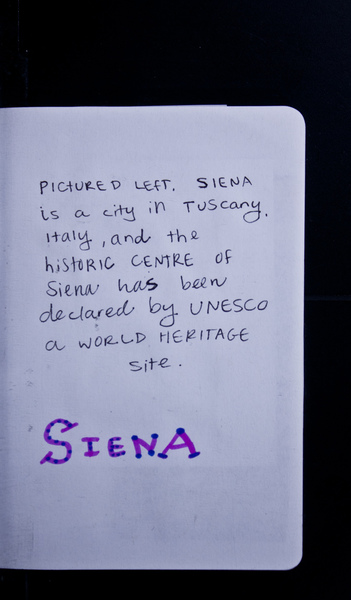 PICTURED LEFT. SIENA
is a city in TUSCany,
Italy, and the
hiSTORIC CENTRE OF
Siena has been
declared by UNESCO
a WORLD HERITAGE
site.
SIENA